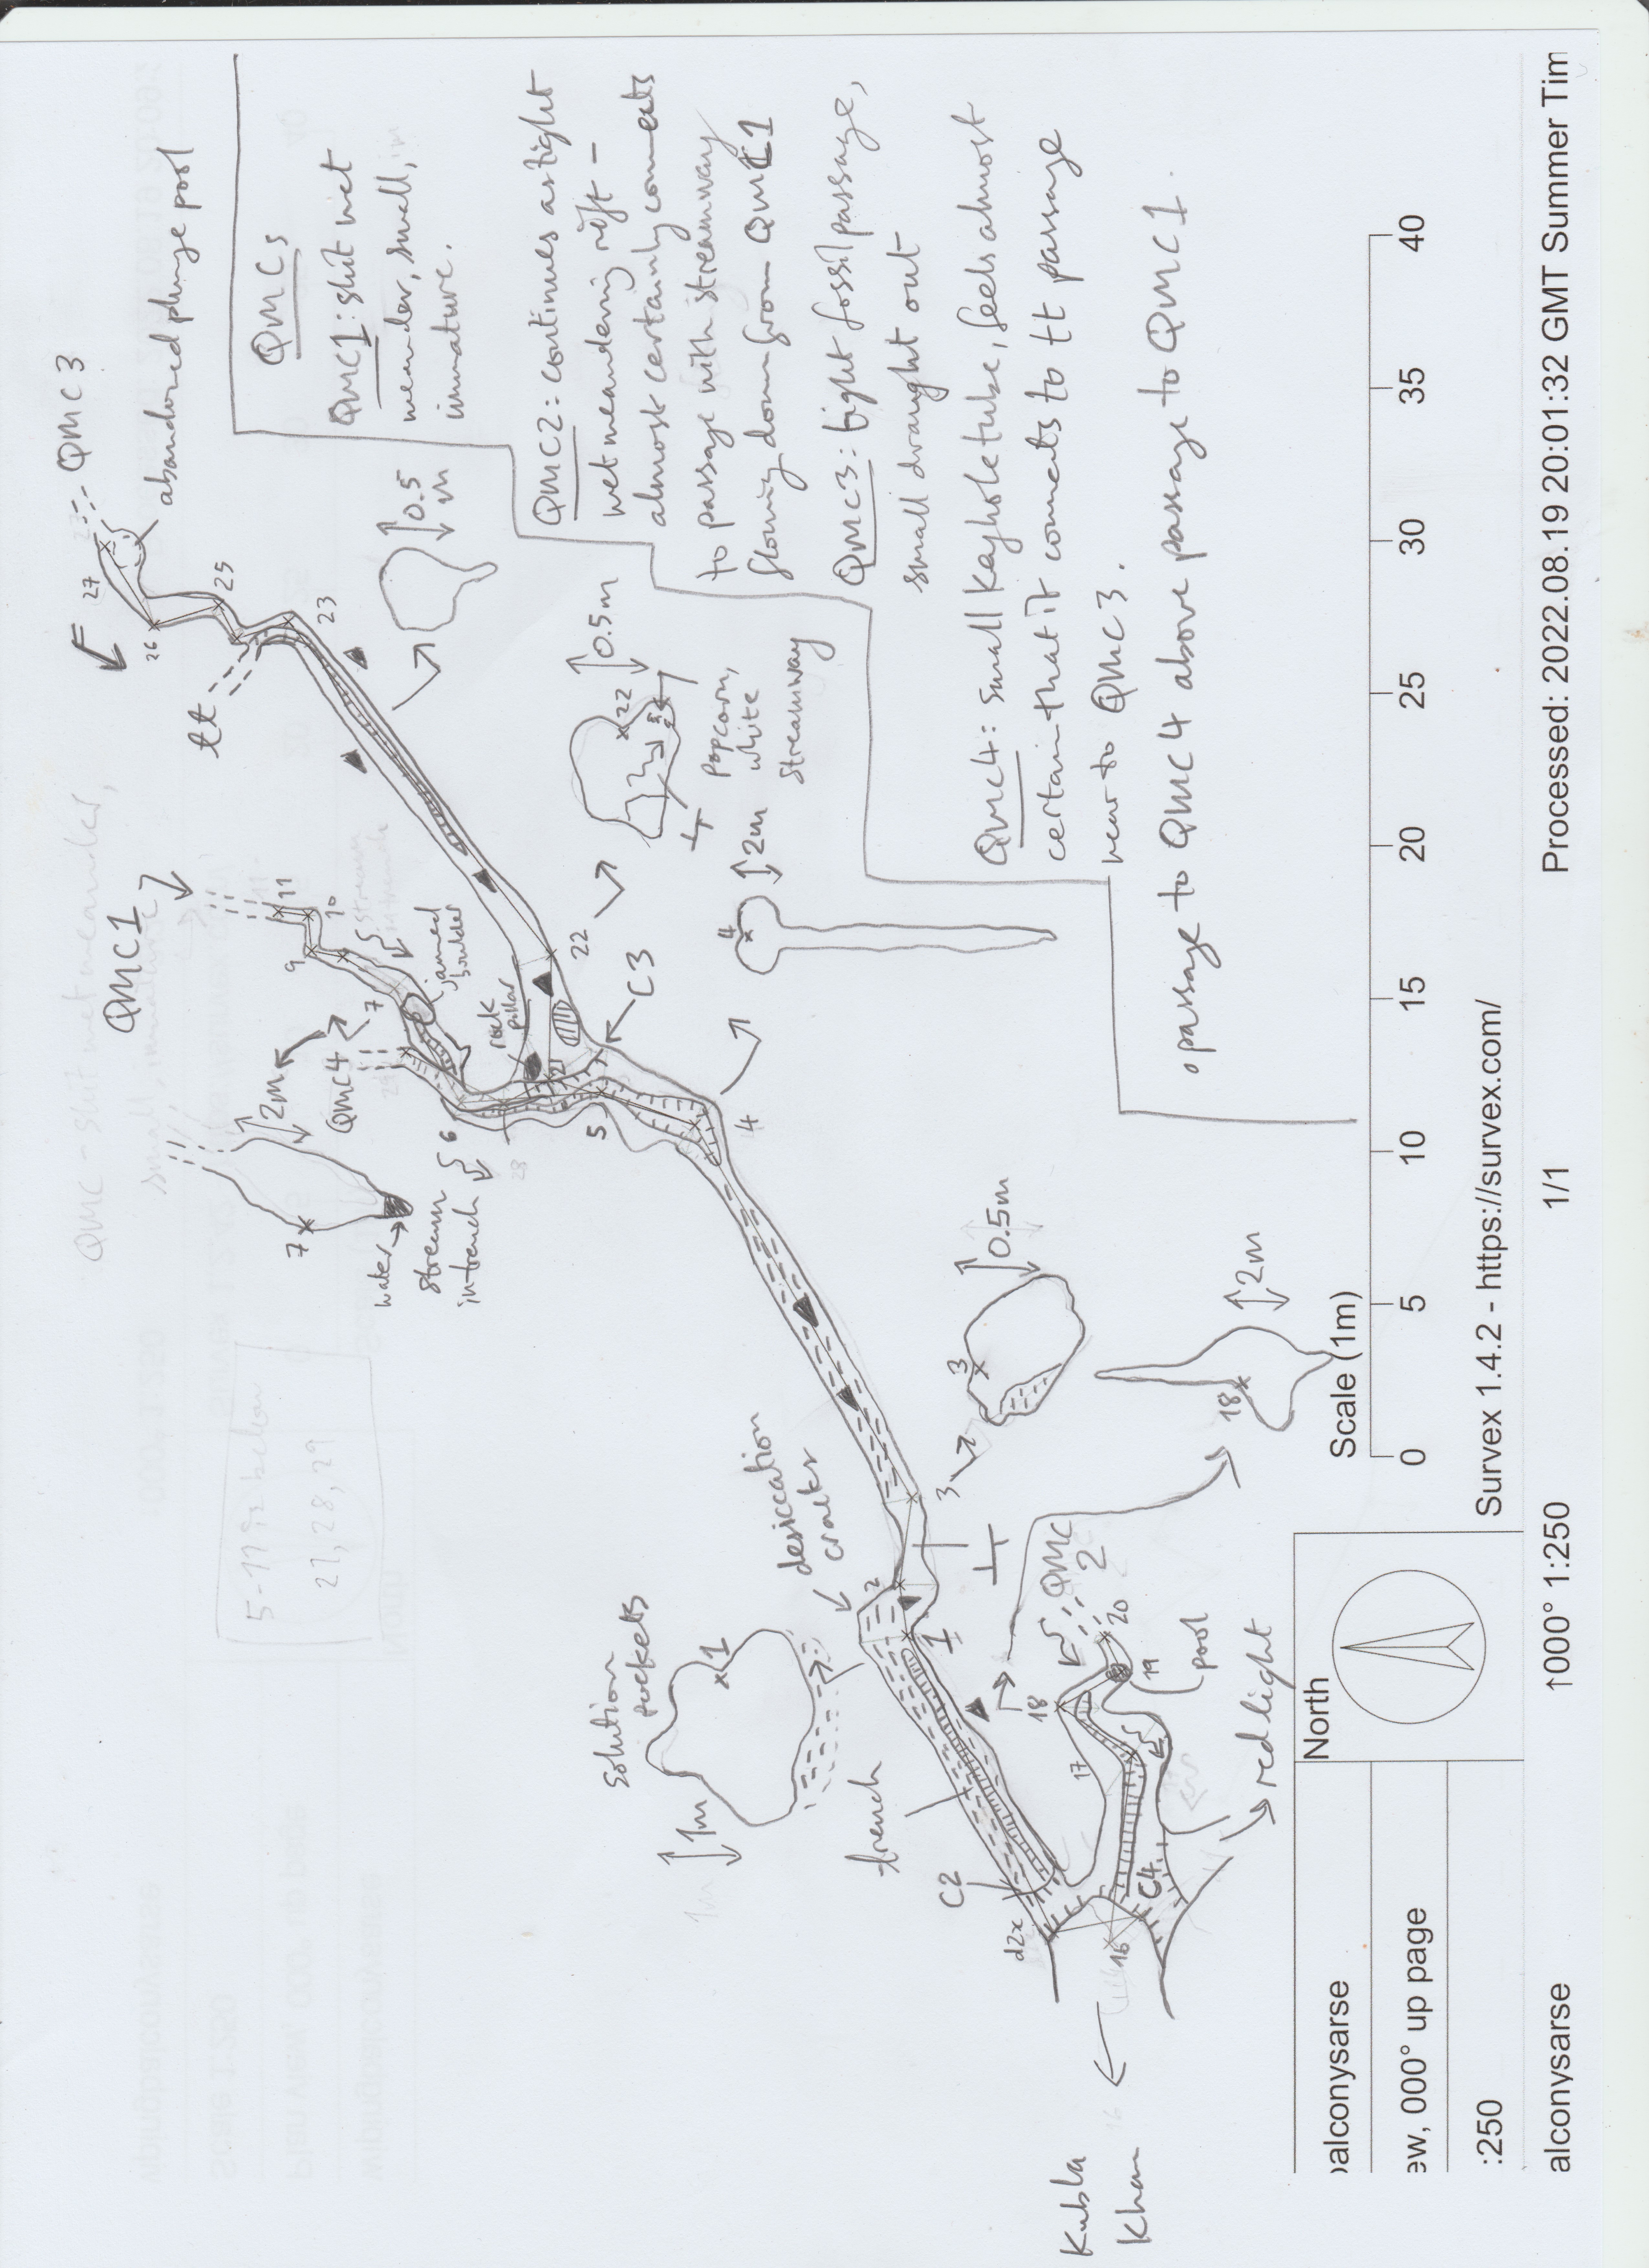 QMC3
abandoned plunge pool
27
26
25
23
tt
QMCs
QMC1: shit wet
meander, small,
immature.
QMC2: continues as tight
wet meandering rift -
almost certainly connects
to passage with streamway
flowing down from QMC1
QMC3: tight fossil passage,
small draught out
QMC4: small keyhole tube, feels almost
certain that it connects to tt passage
near to QMC3.
passage to QMC4 above passage to QMC1.
0.5
m
0.5m
22
popcorn,
white
streamway
2m
4
QMC1
11
10
9
7
stream
in trench
jammed
boulder
rock
pillar
22
C3
QMC4
2m
7
water
stream
in trench
6
28
5
4
QMC - shit wet meander,
small, immature
5-17 is below
21, 28, 29
desiccation
cracks
solution
pockets
1
1m
1m
trench
C2
d2x
2
1
3
3
0.5m
18
2m
QMC
2
20
19
18
17
pool
red light
C4
16
Kubla
Khan
Scale (1m)
0 5 10 15 20 25 30 35 40
North
Survex 1.4.2 - https://survex.com/
alconysarse
ew, 000° up page
:250
alconysarse ↑000° 1:250 1/1 Processed: 2022.08.19 20:01:32 GMT Summer Tim